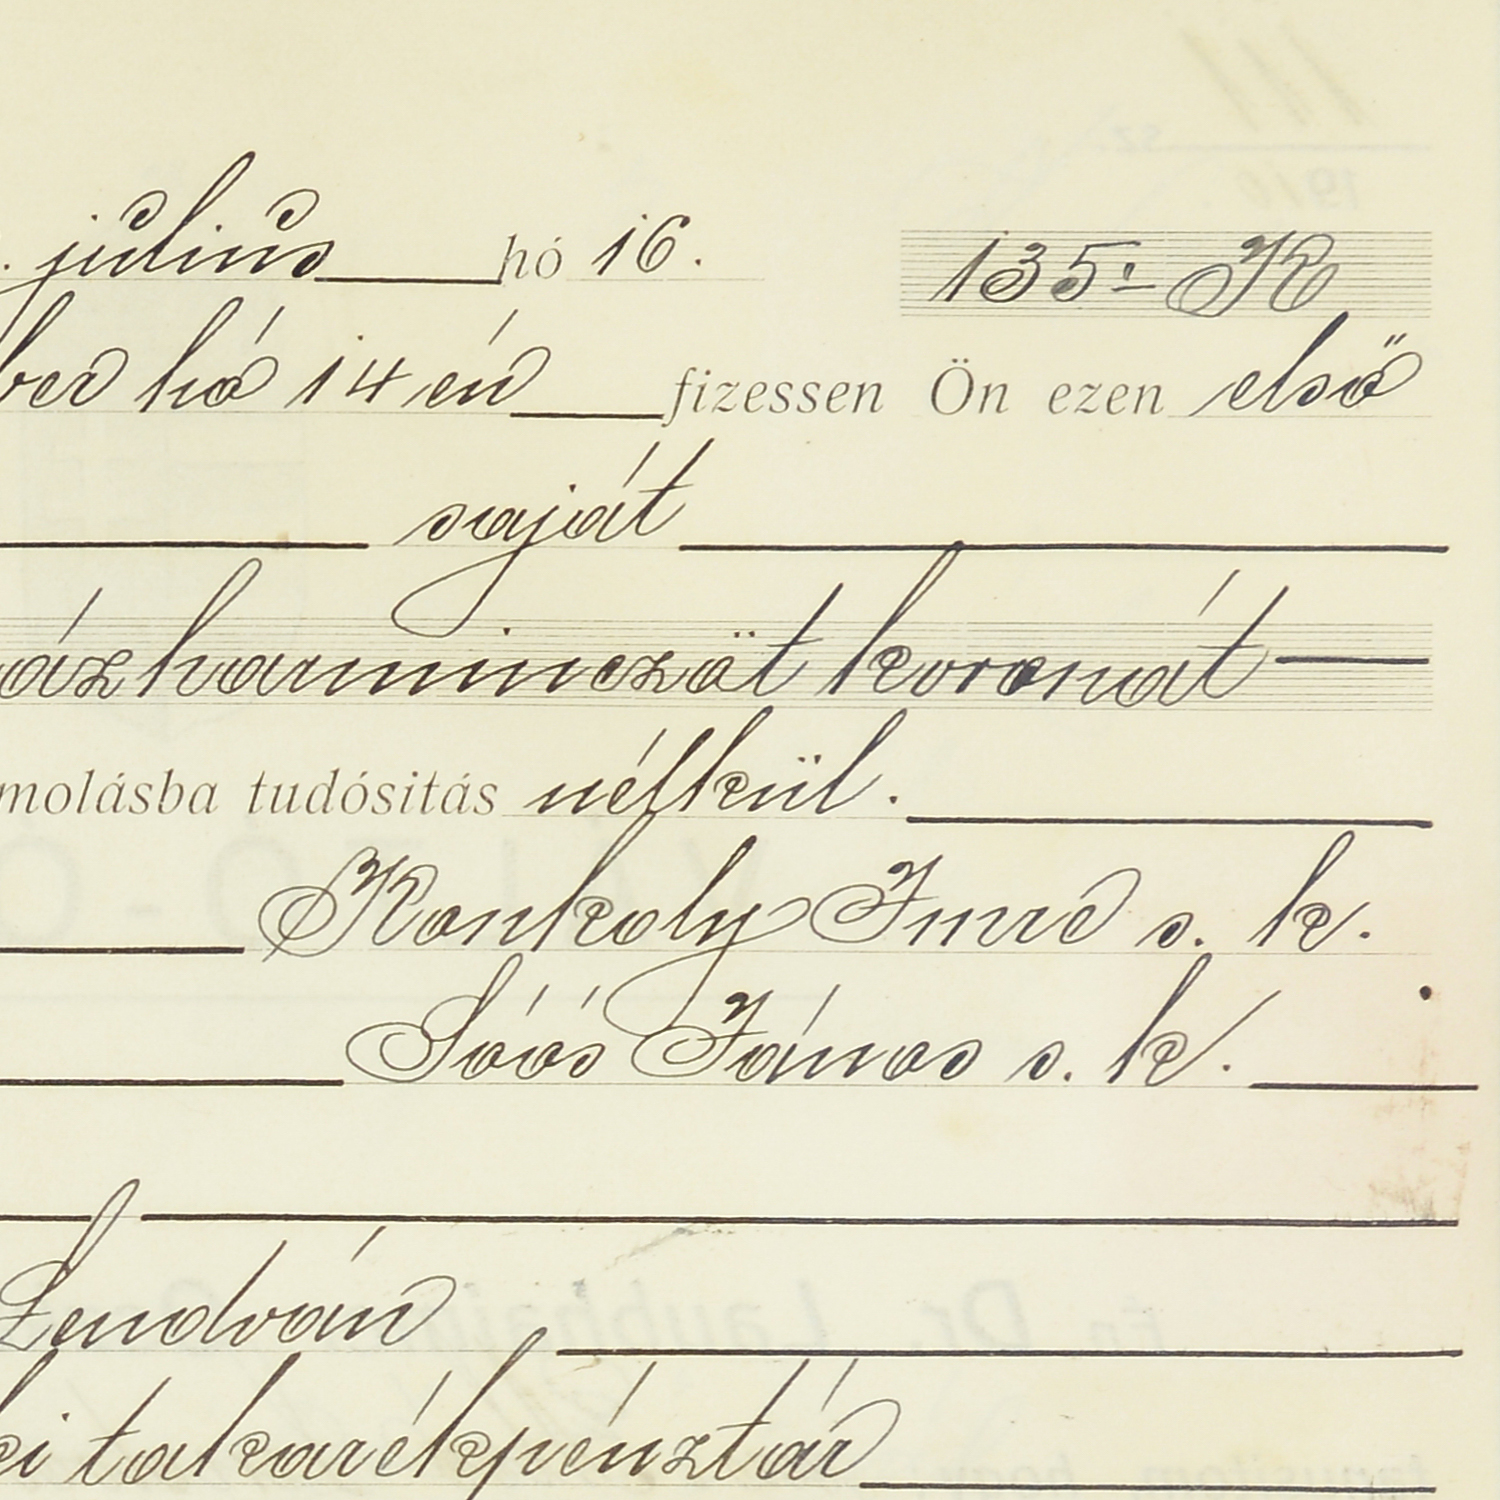 . július hó 16. 135.- K
ber hó 14 én fizessen Ön ezen első
saját
áz harminczöt koronát
molásba tudósitás nélkül.
Konkoly Imre s. k.
Soós János s. k.
Lendván
ki takarékpénztár